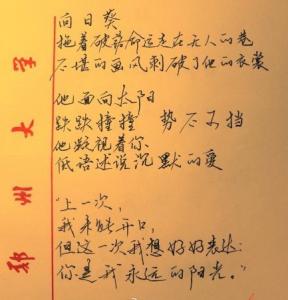 向日葵
拖着破鞋命运走在无人的巷
不堪的画风刺破了他的衣裳
他面向太阳
跌跌撞撞 势不可挡
他凝视着你
低语述说沉默的爱
"上一次，
我未能开口，
但这一次我想好好表达：
你是我永远的阳光。"
郑州大学